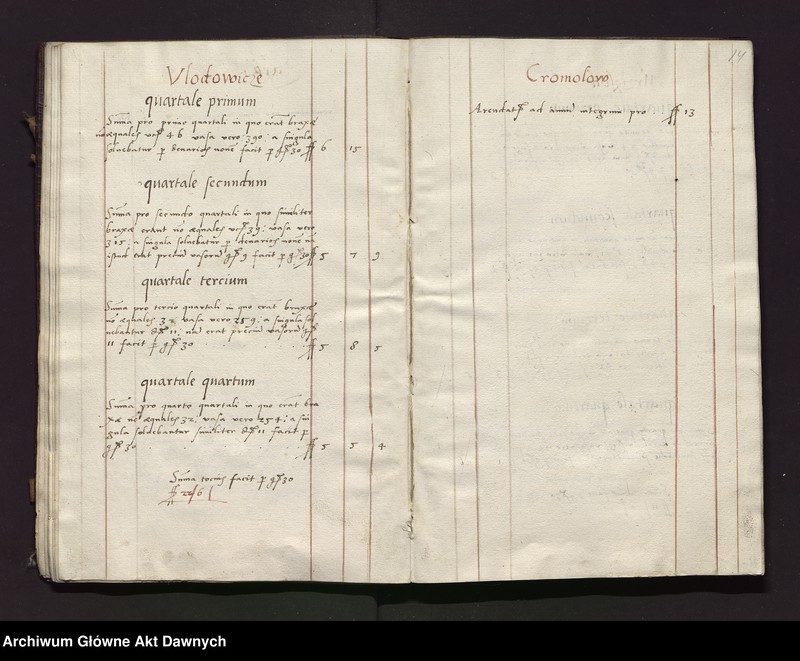 Vlodowicze
quartale primum
Summa pro primo quartali in quo erant braxae
no aequales vtpote 46 vasa vero 390: a singula
soluebatur per denarios nouem facit per gr 30 ff 6 15
quartale secundum
Summa pro secundo quartali in quo similiter
braxae erant no aequales 39: vasa vero
315: a singula soluebatur per denarios nouem na
istud erat precium vasorum gr 9 facit per gr 30 ff 5 7 9
quartale tercium
Summa pro tercio quartali in quo erant braxae
no aequales 32 vasa vero 259: a singula sol
uebantur 11: nam erat precium vasorum
11 facit per gr 30 ff 5 8 5
quartale quartum
Summa pro quarto quartali in quo erant bra
xae no aequales 32: vasa vero 254: a sin
gula soluebantur similiter 11 facit per
gr 30 ff 5 5 4
Summa totius facit per gr 30
ff
Cromolow
14
Arendatum ad annum integrum pro ff 13
Archiwum Główne Akt Dawnych